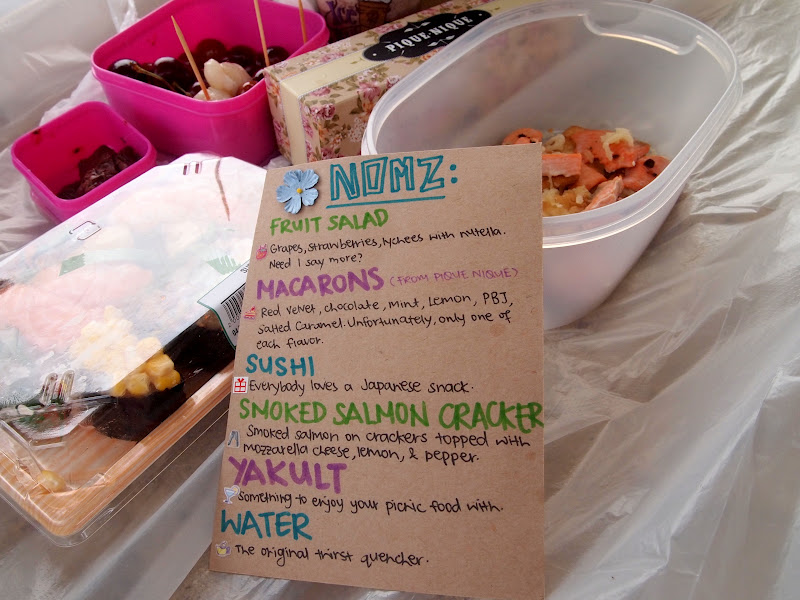 PIQUE-NIQUE
NOMZ:
FRUIT SALAD
Grapes, strawberries, lychees with nutella.
Need I say more?
MACARONS (FROM PIQUE NIQUE)
Red velvet, chocolate, mint, Lemon, PBJ,
salted caramel. Unfortunately, only one of
each flavor.
SUSHI
Everybody loves a Japanese snack.
SMOKED SALMON CRACKER
Smoked salmon on crackers topped with
mozzarella cheese, lemon, & pepper.
YAKULT
Something to enjoy your picnic food with.
WATER
The original thirst quencher.